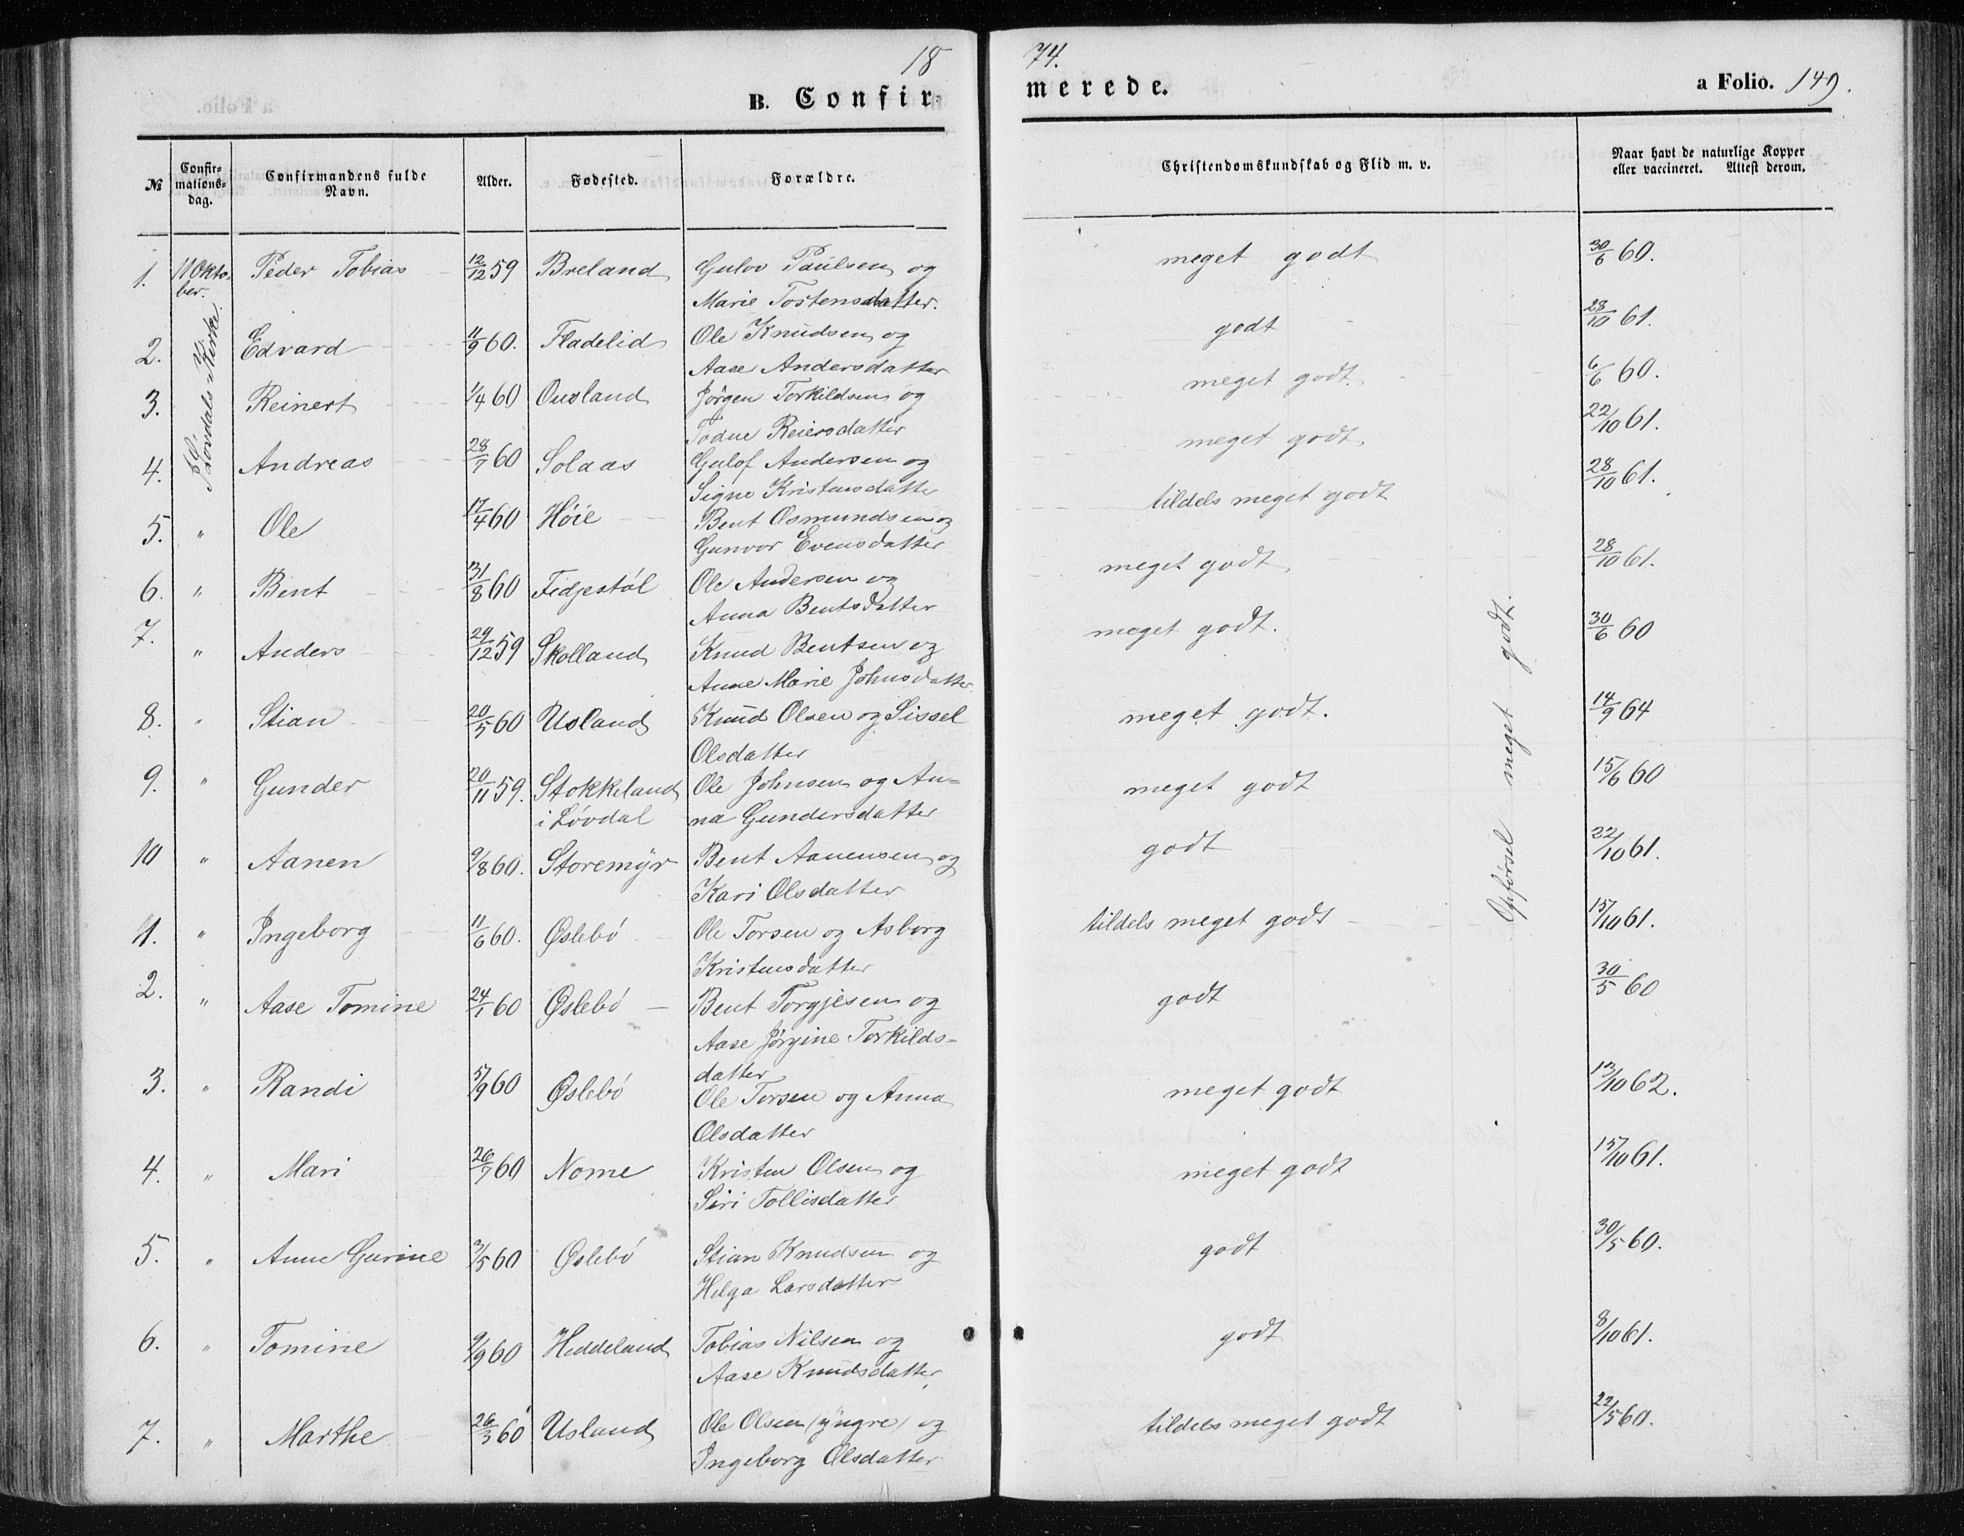 18 74.
B. Confirmerede. a Folio. 149.
№ Confirmationsdag. Confirmandens fulde Navn. Alder. Fødested. Forældre. Christendomskundskab og Flid m. v. Naar havt de naturlige Kopper eller vaccineret. Attest derom.
1. 11 Oktober. Peder Tobias 12/12 59 Breland Gulov Paulsen og meget godt 30/6 60.
Løvdals Kirke.
Marie Tostensdatter.
2. Edvard 11/9 60. Fladelid Ole Knudsen og godt 28/10 61.
Aase Andersdatter
3. Reinert 1/4 60 Ousland Jørgen Torkildsen og meget godt 6/6 60.
Todne Reiersdatter
4. Andreas 28/7 60 Solaas Gulof Andersen og meget godt 22/10 61.
Signe Kristensdatter
5. " Ole 17/4 60 Høie Bent Osmundsen og tildels meget godt 28/10 61.
Gunvor Evensdatter
6. " Bent 31/8 60 Fidjestøl Ole Andersen og meget godt 28/10 61.
Anna Bentsdatter
7. " Anders 29/12 59 Skolland Knud Bentsen og meget godt. 30/6 60
Anne Marie Johnsdatter
8. " Stian 20/5 60 Usland Knud Olsen og Sissel meget godt. 14/9 64
Olsdatter
9. " Gunder 20/11 59. Stokkeland Ole Johnsen og An- meget godt 15/6 60
i Løvdal na Gundersdatter
10 " Aanen 9/8 60. Storemyr Bent Aanensen og godt 22/10 61.
Kari Olsdatter
11. " Ingeborg 11/6 60. Øslebø Ole Torsen og Asborg tildels meget godt 15/10 61.
Kristensdatter
2. " Aase Tomine 24/1 60 Øslebø Bent Torgjesen og godt 30/5 60
Aase Jørgine Torkilds-
datter
3. " Randi 5/9 60 Øslebø Ole Torsen og Anna meget godt 13/10 62.
Olsdatter
4. " Mari 26/7 60 Nome Kristen Olsen og meget godt 15/10 61.
Siri Tollisdatter
5. " Anne Gurine 3/5 60 Øslebø Stian Knudsen og godt 30/5 60.
Helga Larsdatter
6. " Tomine 9/9 60 Heddeland Tobias Nilsen og godt 8/10 61.
Aase Knudsdatter
7. " Marthe 26/3 60 Usland Ole Olsen (yngre) og tildels meget godt 22/5 60.
Ingeborg Olsdatter
Opførsel meget godt.